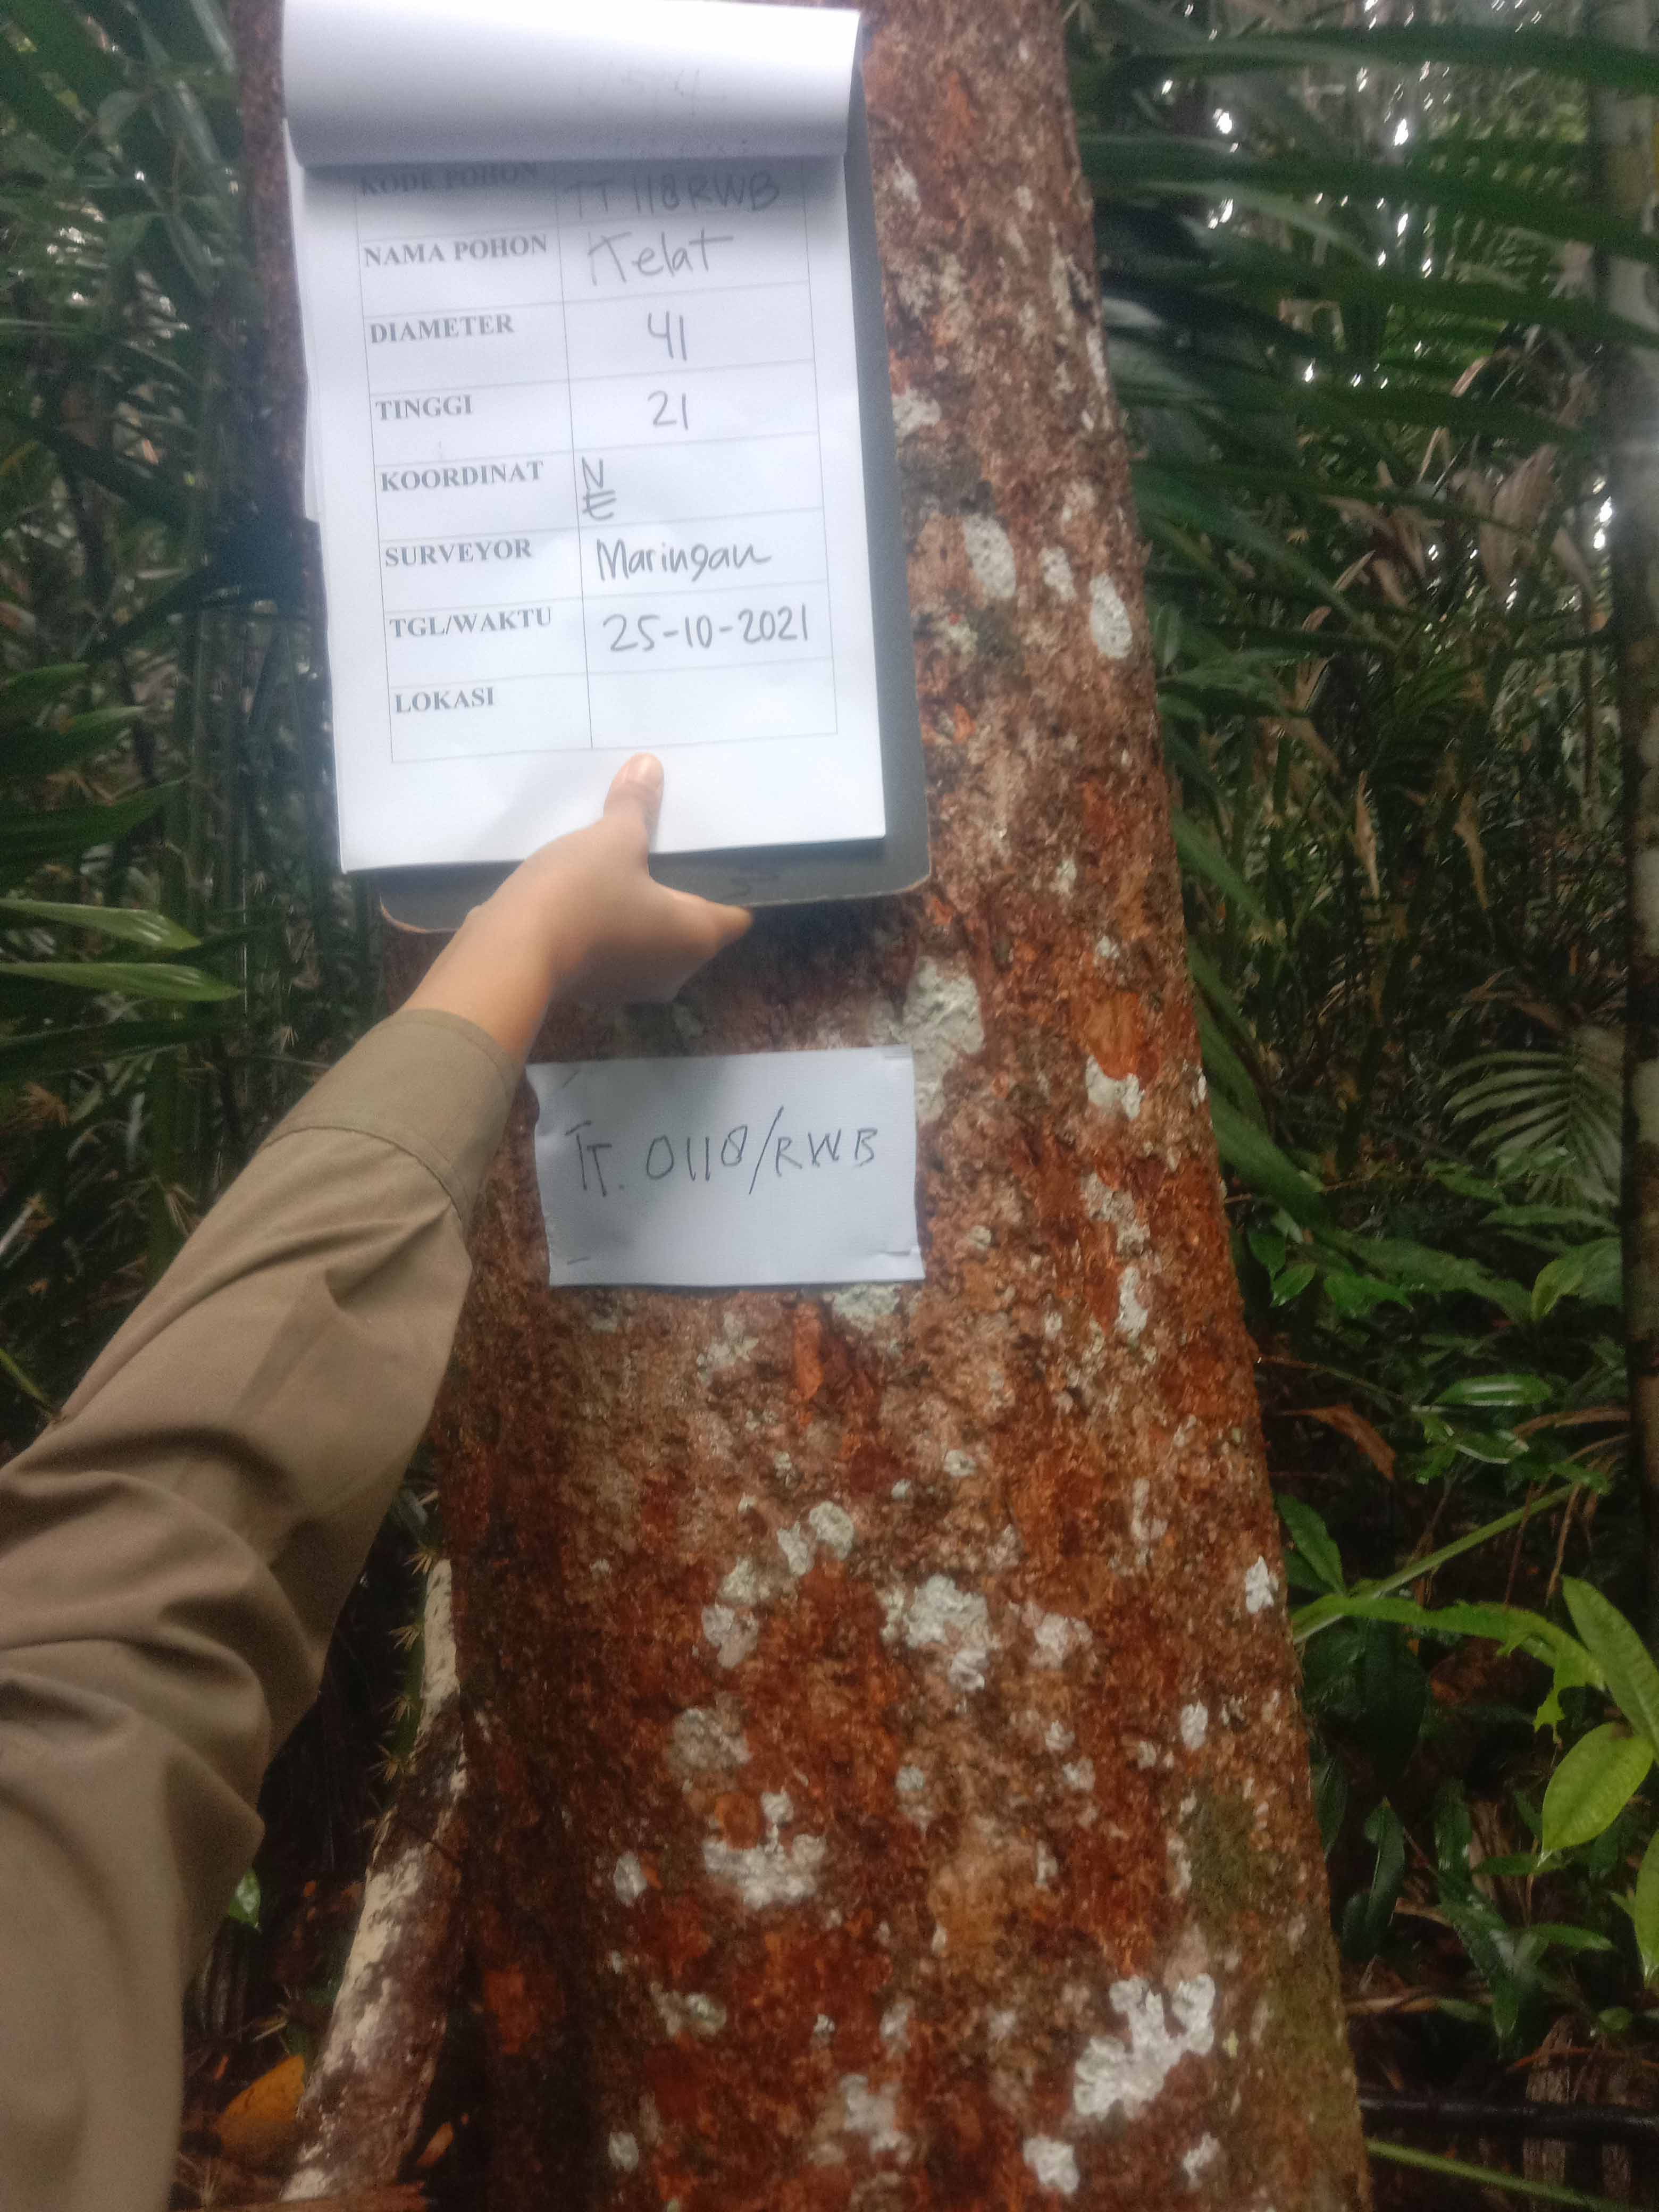 KODE POHON TT 118 RWB
NAMA POHON Kelat
DIAMETER 41
TINGGI 21
KOORDINAT N
E
SURVEYOR Maringan
TGL/WAKTU 25-10-2021
LOKASI
TT. 0118/RWB